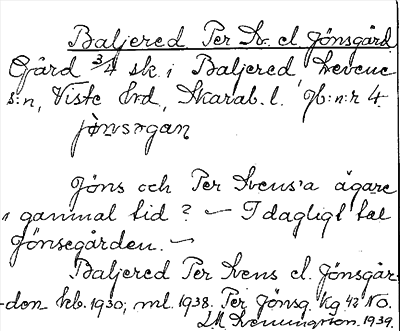 Baljered Per Sv. el. Jönsgård
Gård 3/4 sk. i Baljered, Levene
s:n, Viste hrd, Skarab. l. Jb:n:r 4.
jønsǝgan
Jöns och Per Svens'a ägare
i gammal tid? — I dagligt tal
Jönsegården. —
Baljered Per Svens el. Jönsgår-
den kb. 1930, ml. 1938. Per Jönsg. Kg 42 NO.
1939.